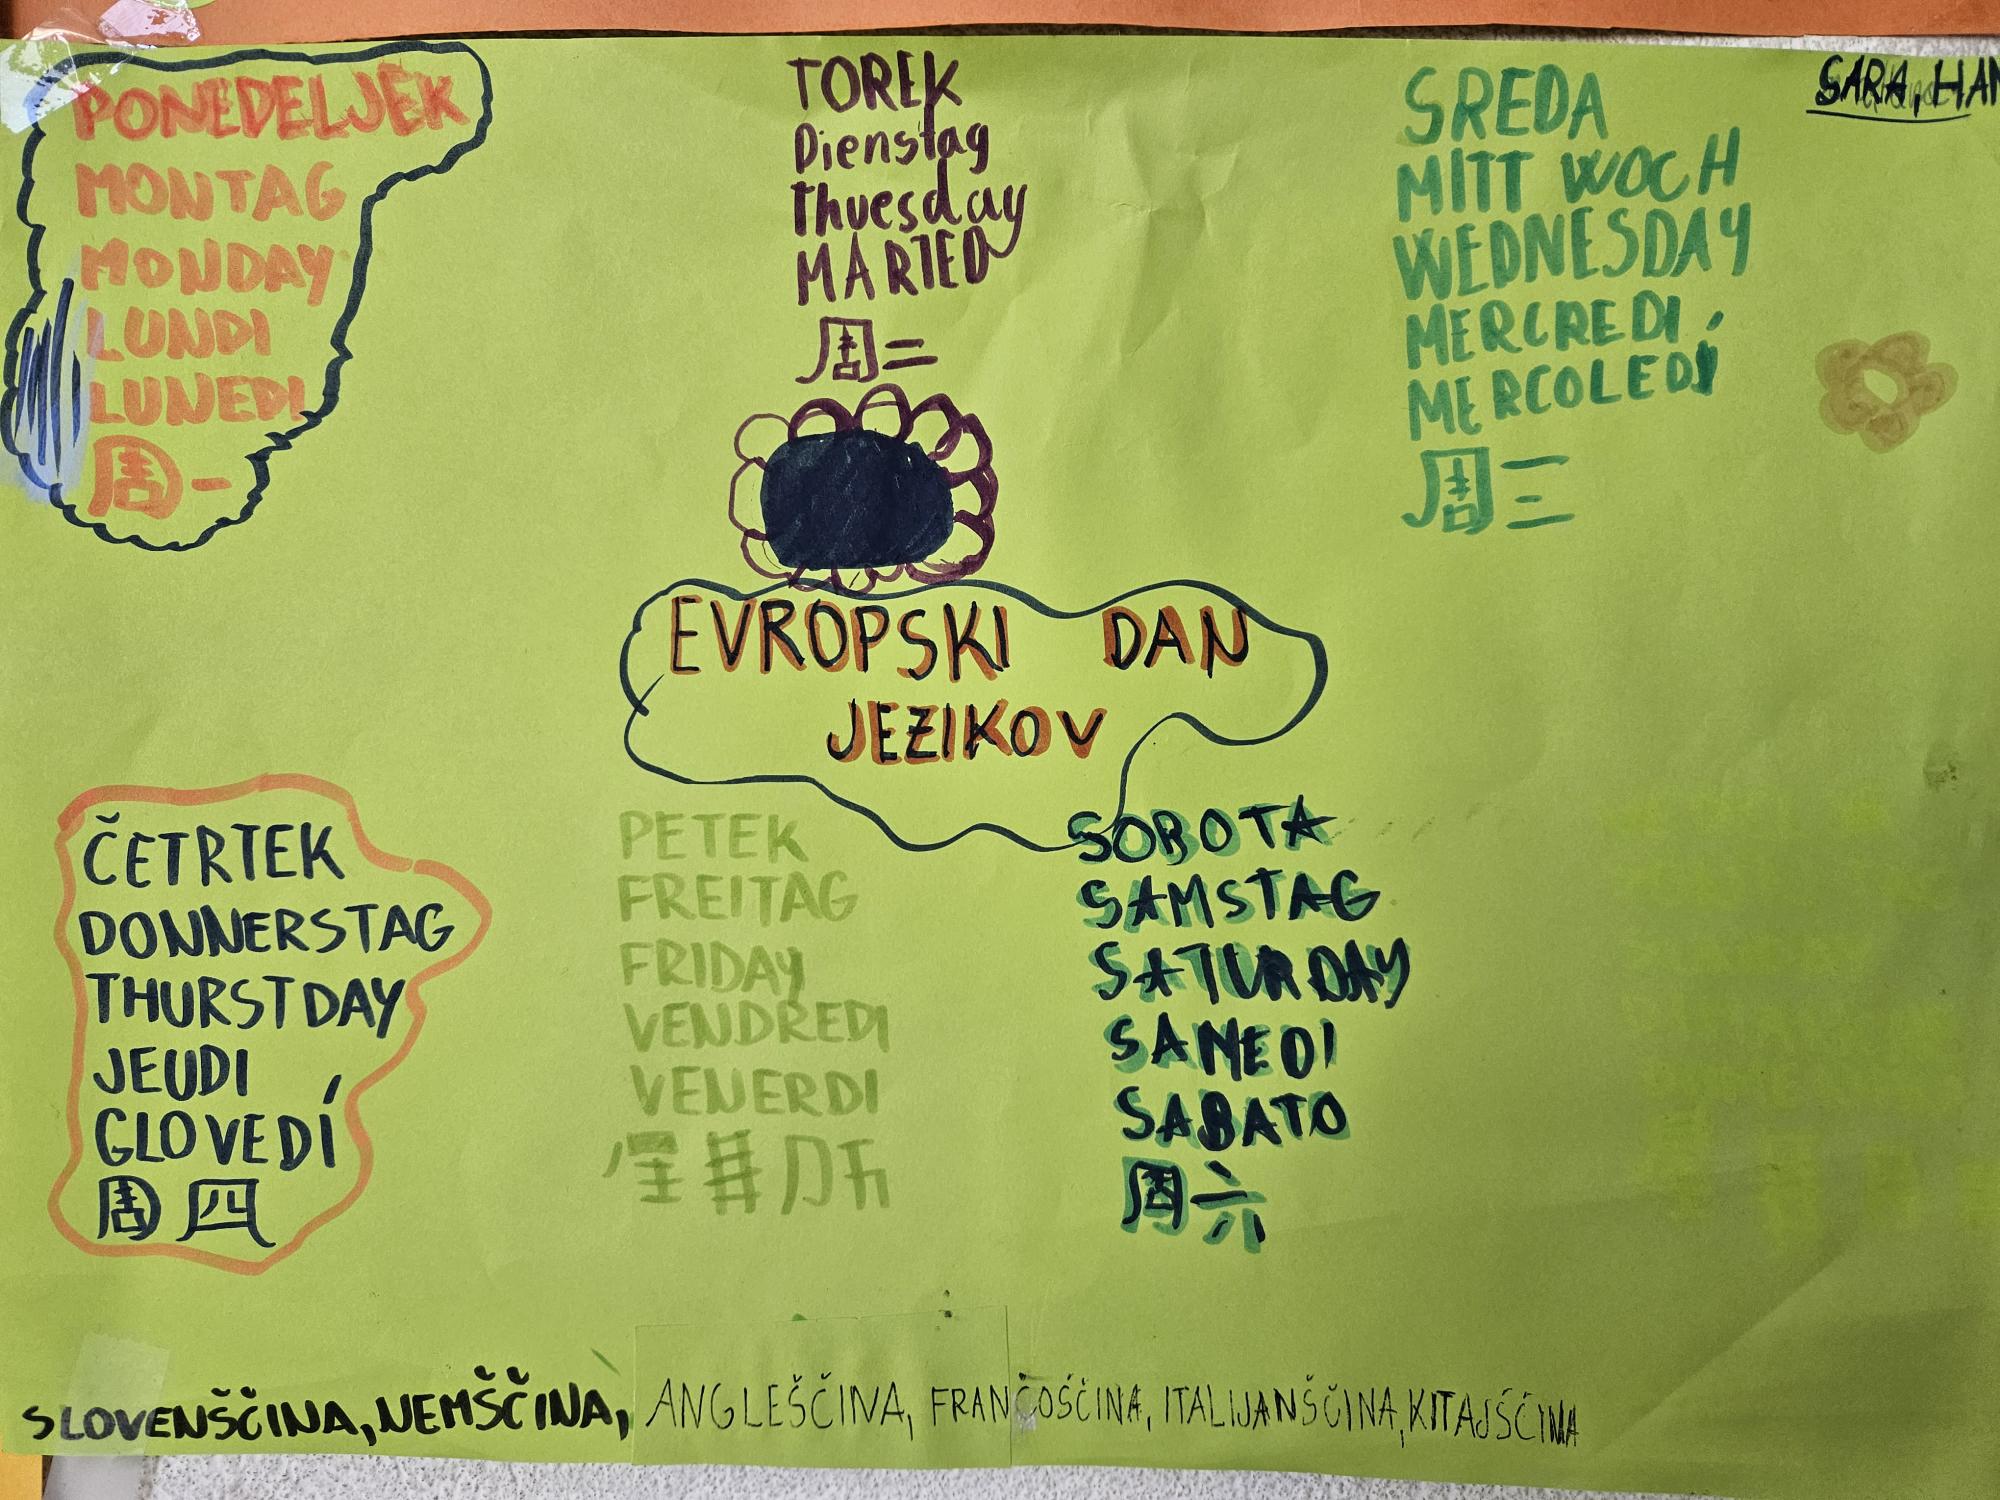 PONEDELJEK
MONTAG
MONDAY
LUNDI
LUNEDI
周一
TOREK
Dienstag
thuesday
MARTED
周二
SREDA
MITT WOCH
WEDNESDAY
MERCREDI
MERCOLEDÍ
周三
SARA, HAN
EVROPSKI DAN
JEZIKOV
ČETRTEK
DONNERSTAG
THURSTDAY
JEUDI
GLOVEDÍ
周四
PETEK
FREITAG
FRIDAY
VENDREDI
VENERDI
SOBOTA
SAMSTAG
SATURDAY
SAMEDI
SABATO
周六
SLOVENŠČINA, NEMŠČINA, ANGLEŠČINA, FRANČOŠČINA, ITALIJANŠČINA, KITAJŠČINA